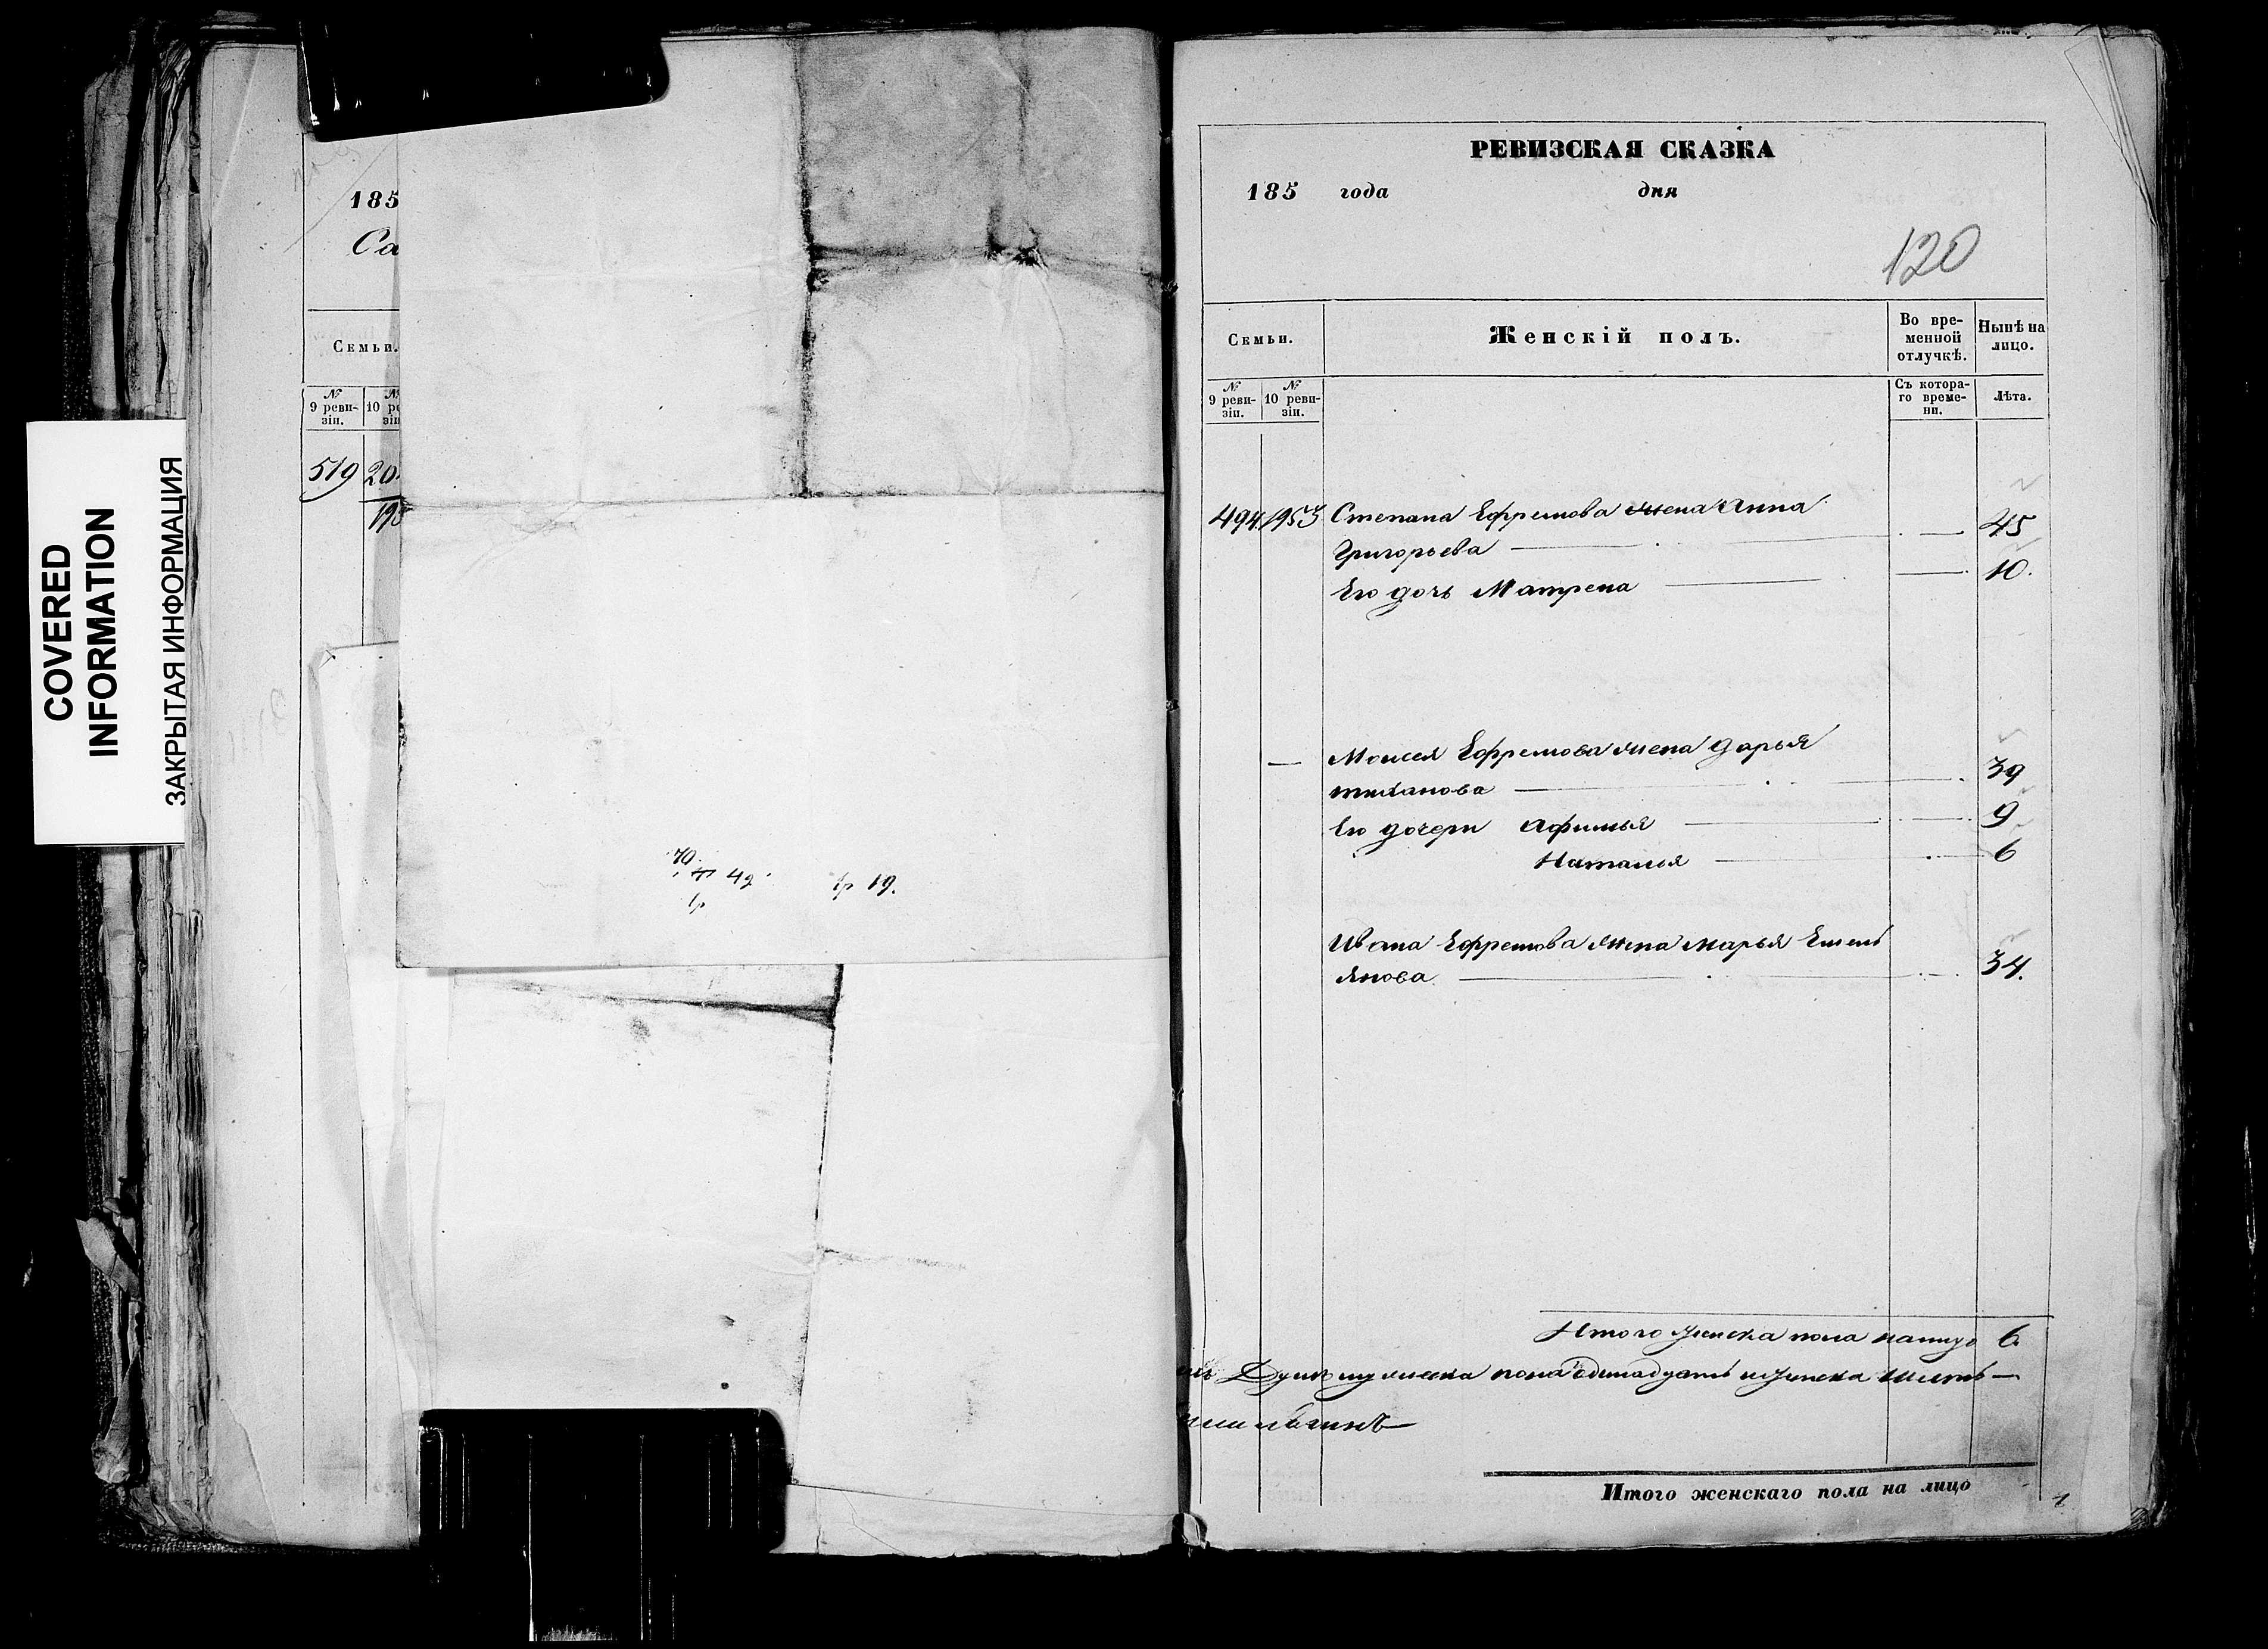 COVERED
INFORMATION
ЗАКРЫТАЯ ИНФОРМАЦИЯ
185
Са
Семьи.
№ 9 реви-зіи.
519 20
РЕВИЗСКАЯ СКАЗКА
185 года дня
120
Семьи.
Женскій полъ.
Во вре-
менной
отлучкѣ.
Нынѣ на
лицо.
№ 9 реви-зіи.
№ 10 реви-зіи.
Съ котора-
го време-
ни.
Лѣта.
494 1953 Степана Ефремова жена Анна
Григорьева 45
Его дочь Матрена 10.
Моисея Ефремова жена Дарья
39
Его дочери Афимья 9
Наталья 6
Ивана Ефремова жена Марья Емель
янова 34.
42
19.
Итого женска пола налицо 6
Душъ мужеска пола одинадцать и женска шесть
Итого женскаго пола на лицо